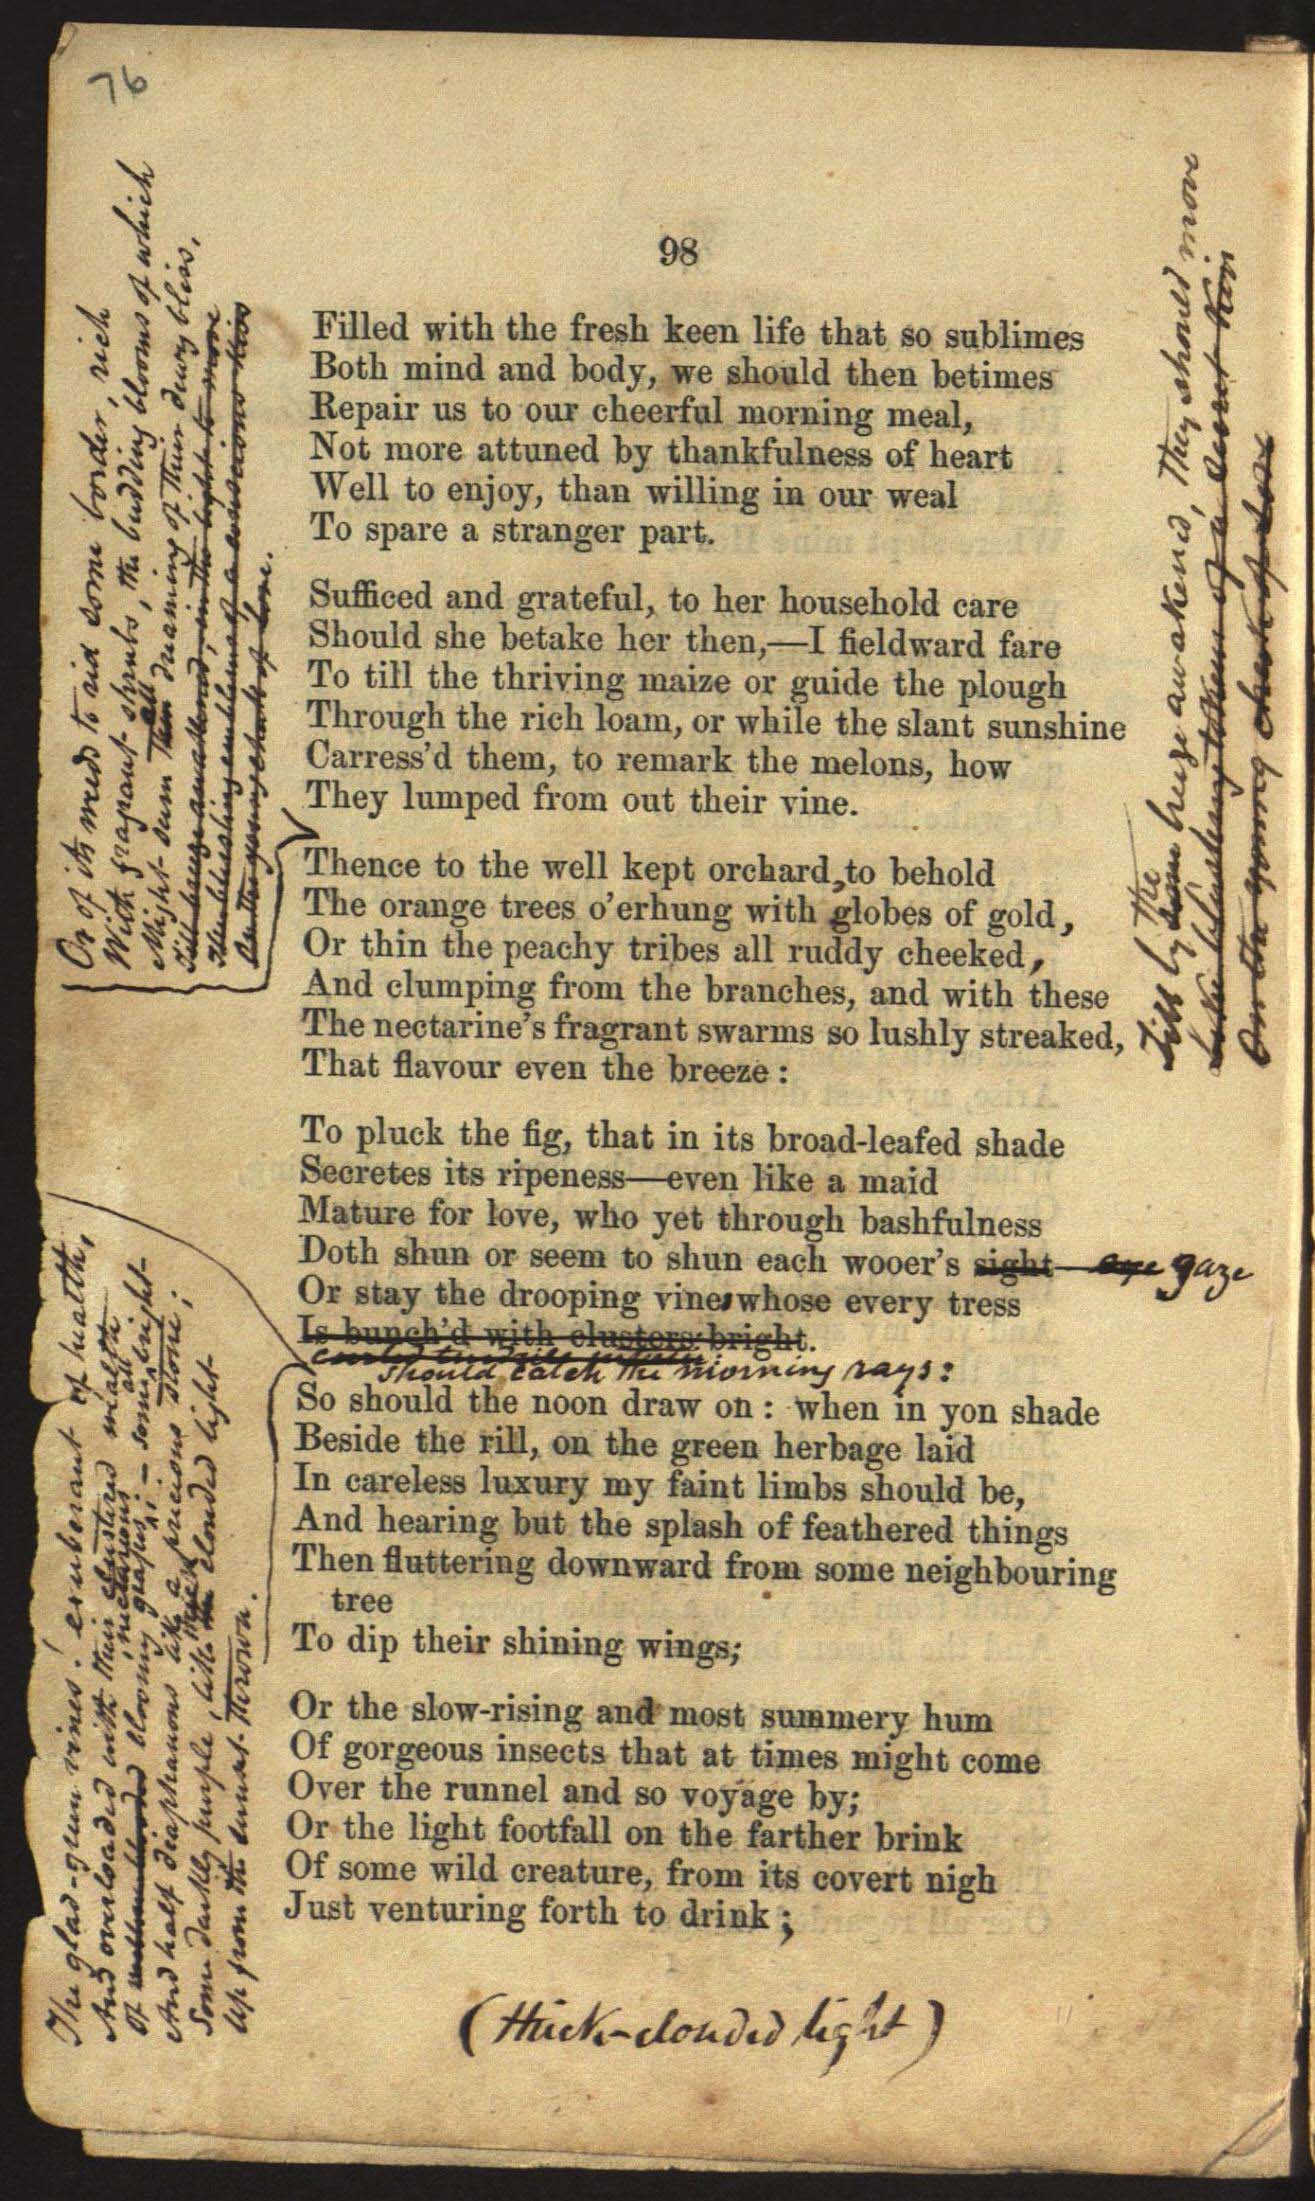 76
98
Filled with the fresh keen life that so sublimes
Both mind and body, we should then betimes
Repair us to our cheerful morning meal,
Not more attuned by thankfulness of heart
Well to enjoy, than willing in our weal
To spare a stranger part.
Sufficed and grateful, to her household care
Should she betake her then,—I fieldward fare
To till the thriving maize or guide the plough
Through the rich loam, or while the slant sunshine
Carress'd them, to remark the melons, how
They lumped from out their vine.
Thence to the well kept orchard, to behold
The orange trees o'erhung with globes of gold,
Or thin the peachy tribes all ruddy cheeked,
And clumping from the branches, and with these
The nectarine's fragrant swarms so lushly streaked,
That flavour even the breeze:
To pluck the fig, that in its broad-leafed shade
Secretes its ripeness—even like a maid
Mature for love, who yet through bashfulness
Doth shun or seem to shun each wooer's sight eye gaze
Or stay the drooping vine, whose every tress
Is bunch'd with clusters bright.
should catch the morning rays:
So should the noon draw on: when in yon shade
Beside the rill, on the green herbage laid
In careless luxury my faint limbs should be,
And hearing but the splash of feathered things
Then fluttering downward from some neighbouring
tree
To dip their shining wings;
Or the slow-rising and most summery hum
Of gorgeous insects that at times might come
Over the runnel and so voyage by;
Or the light footfall on the farther brink
Of some wild creature, from its covert nigh
Just venturing forth to drink;
(thick-clouded light)
Or of its weeds to rid some border, rich
With fragrant shrubs, the budding blooms of which
Might seem then all dreaming of their dewy bliss,
Till breeze awakened, in the light to move
Like blushing emblems of a conscious kiss
On the young cheek of love.
Till by some the breeze awakened, they should move
Like blushing token of a secret kiss
On the young cheek of love
The glad-green vines! exuberant of health,
And overloaded with their clustered wealth
Of bloomy nectarious grapes; – some all bright
And half diaphanous like a precious stone;
Some darkly purple, like thick clouded light
Up from the sunset thrown.